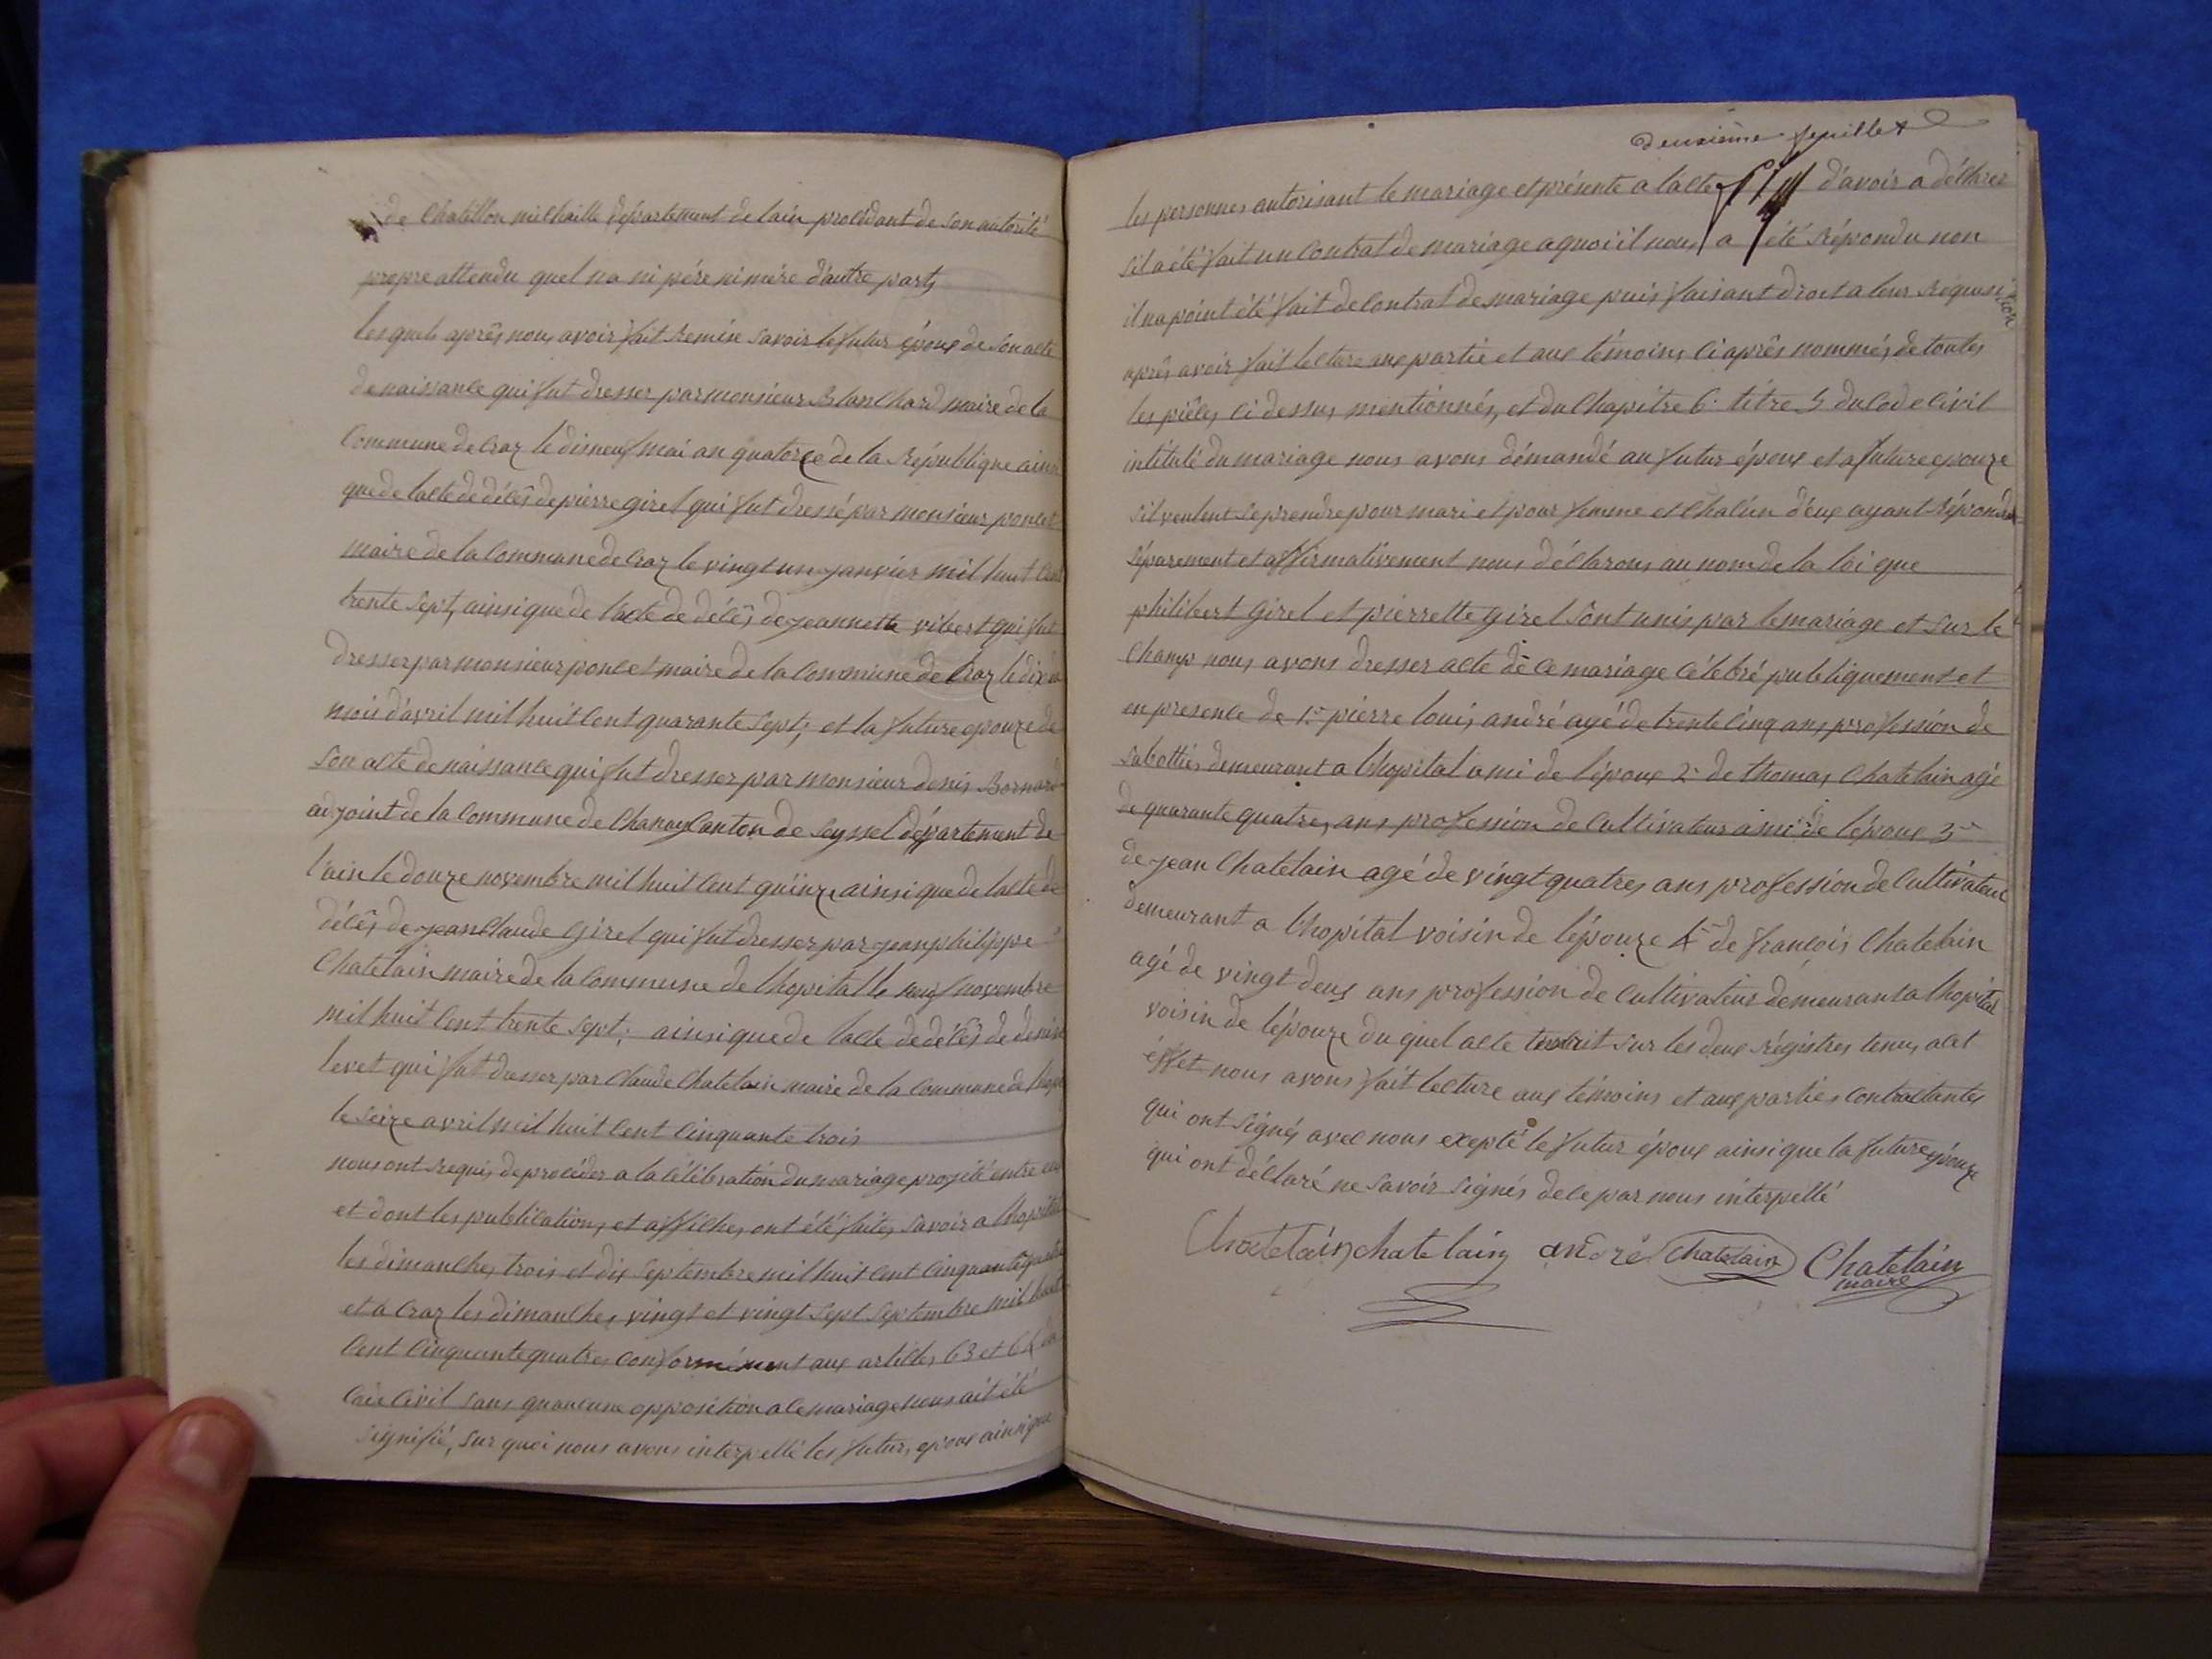 de Chatillon michaille département de lain procédant de son autorité
propre attendu quel na ni pére ni mére d'autre part,
lesquels aprês nous avoir fait remise savoir le futur époux de son acte
de naissance qui fut dresser par monsieur Blanchard maire de la
Commune de Craz le disneuf mai an quatorze de la République ainsi
que de lacte de décês de pierre girel qui fut dressé par monsieur poncet
maire de la Commune de Craz le vingt un janvier mil huit Cent
trente sept, ainsi que de l'acte de décês de jeannette vibert qui fut
dresser par monsieur poncet maire de la Commune de Craz le dix
mois d'avril mil huit Cent quarante sept, et la future epouze de
son acte de naissance qui fut dresser par monsieur denis Bornard
adjoint de la Commune de Chanay Canton de Seyssel département de
l'ain le douze novembre mil huit Cent quinze ainsi que de lacte de
décês de jean Claude Girel qui fut dresser par jean philippe
Chatelain maire de la Commune de lhopital le neuf novembre
mil huit Cent trente sept; ainsi que de lacte de décês de denise
levet qui fut dresser par Claude Chatelain maire de la Commune de
le seize avril mil huit Cent Cinquante trois
nous ont requis de procéder a la Célébration du mariage projeté entre eux
et dont les publications et affiches ont été faites savoir a lhopital
les dimanches trois et dix Septembre mil huit Cent Cinquante quatre
et a Craz les dimanches vingt et vingt sept Septembre mil huit
Cent Cinquante quatres Conformément aux articles 63 et 64 du
Code Civil sans quaucune opposition a ce mariage nous ait été
signifié, sur quoi nous avons interpellé les futurs epoux ainsi que
deuxième feuillet
les personnes autorisant le mariage et présente a lacte d'avoir a déclarer
sil a été fait un Contrat de mariage a quoi il nous a été répondu non
il na point été fait de Contrat de mariage puis faisant droit a leur réquisition
aprês avoir fait lecture aux partie et aux témoins Ci aprês nommés de toutes
les piêces Ci dessus mentionnés, et du Chapitre 6. titre 5 du Code Civil
intitulé du mariage nous avons démandé au futur époux et a future epouze
sil veulent se prendre pour mari et pour femme et Chacun d'eux ayant répondu
séparement et affirmativement nous déclarons au nom de la loi que
philibert Girel et pierrette girel sont unis par le mariage et sur le
Champ nous avons dresser acte de ce mariage Célébré publiquement et
en presence de 1.° pierre louis andré agé de trente Cinq ans profession de
sabottier demeurant a lhopital ami de l'époux 2° de thomas Chatelain agé
de quarante quatres ans profession de Cultivateur ami de l'époux 3°
de jean Chatelain agé de vingt quatres ans profession de Cultivateur
demeurant a lhopital voisin de l'épouze 4° de françois Chatelain
agé de vingt deux ans profession de Cultivateur demeurant a lhopital
voisin de l'épouze du quel acte sur les deux régistres tenus a cet
éffet nous avons fait lecture aux témoins et aux parties Contractantes
qui ont signés avec nous exepté le futur époux ainsi que la future épouze
qui ont déclaré ne savoir signés de ce par nous interpellé
Chatelain chatelain andré Chatelain Chatelain
maire